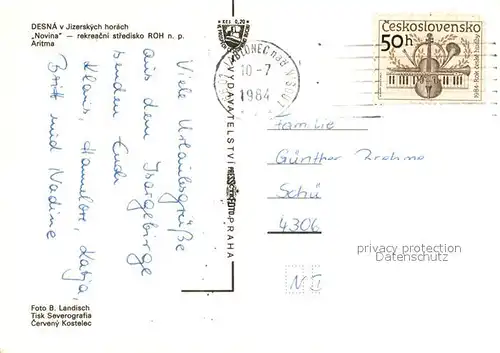 DESNÁ v Jizerských horách
„Novina" — rekreační středisko ROH n. p.
Aritma
Viele Urlaubsgrüße
aus dem Isergebirge
senden Euch
Klaus, Hannelore, Katja,
Britt und Nadine
Foto B. Landisch
Tisk Severografia
Červený Kostelec
VYDAVATELSTVÍ PRESSFOTO PRAHA
KčS 0,20
JABLONEC nad NISOU 1
10-7
1984
Československo
50h
1984 - Rok české hudby
Familie
Günther
4306
privacy protection
Datenschutz